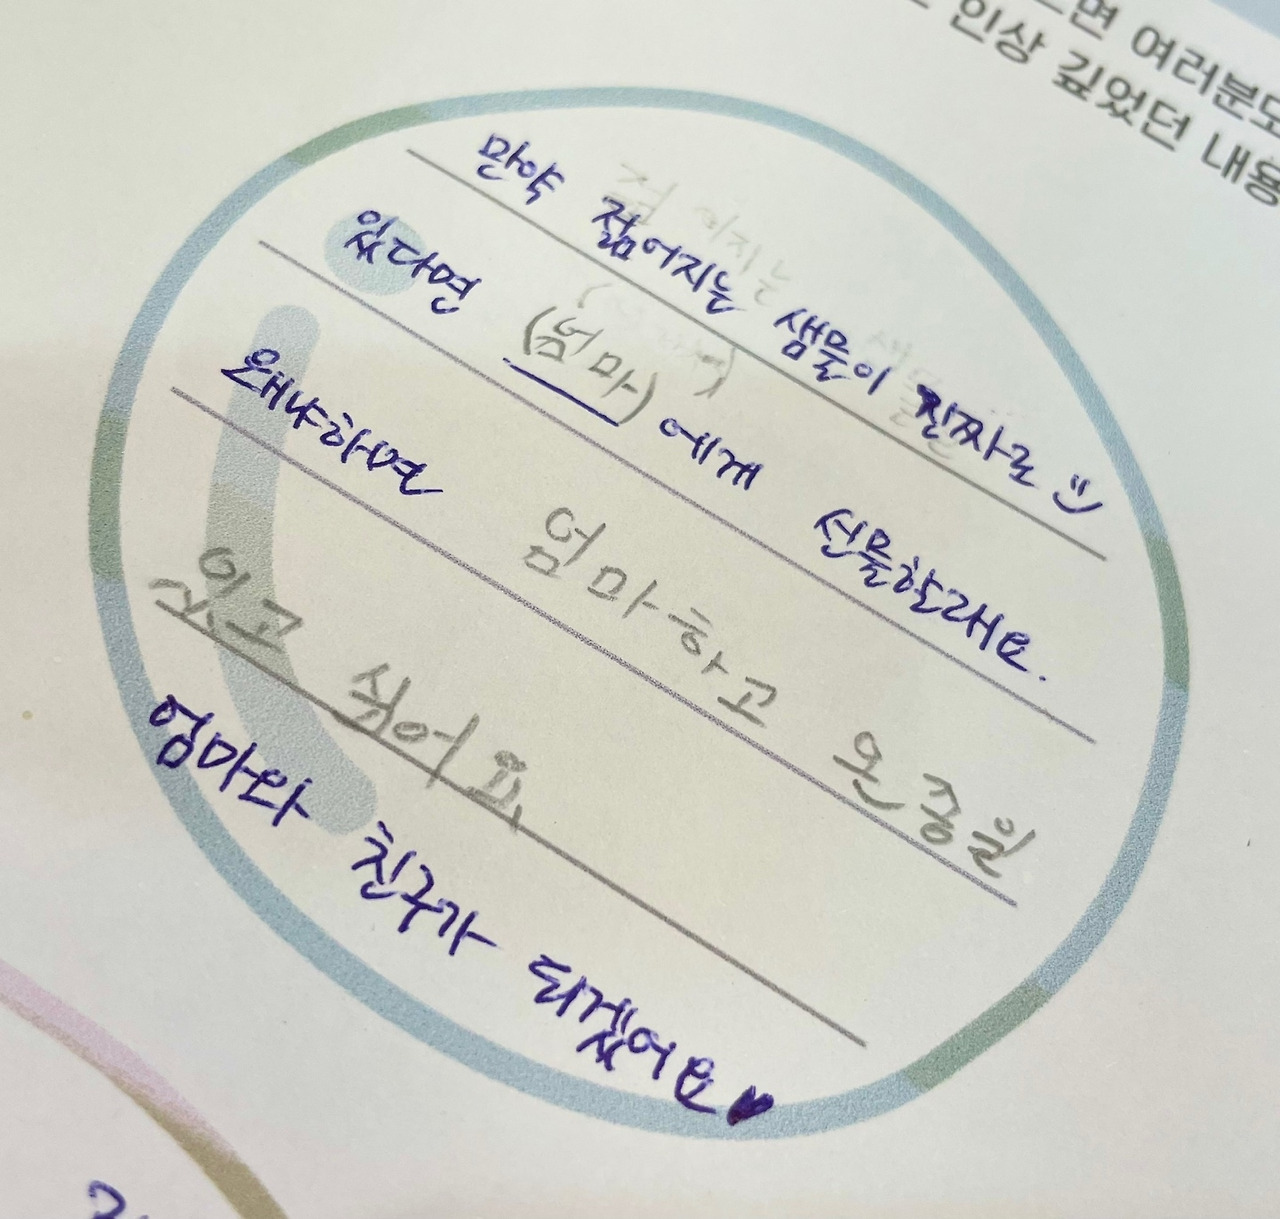 면 여러분도
인상 깊었던 내용
만약 젊어지는 샘물이 진짜로
있다면 (엄마)에게 선물할래요.
왜냐하면 엄마하고 온종일
있고 싶어요.
엄마랑 친구가 되겠어요♥